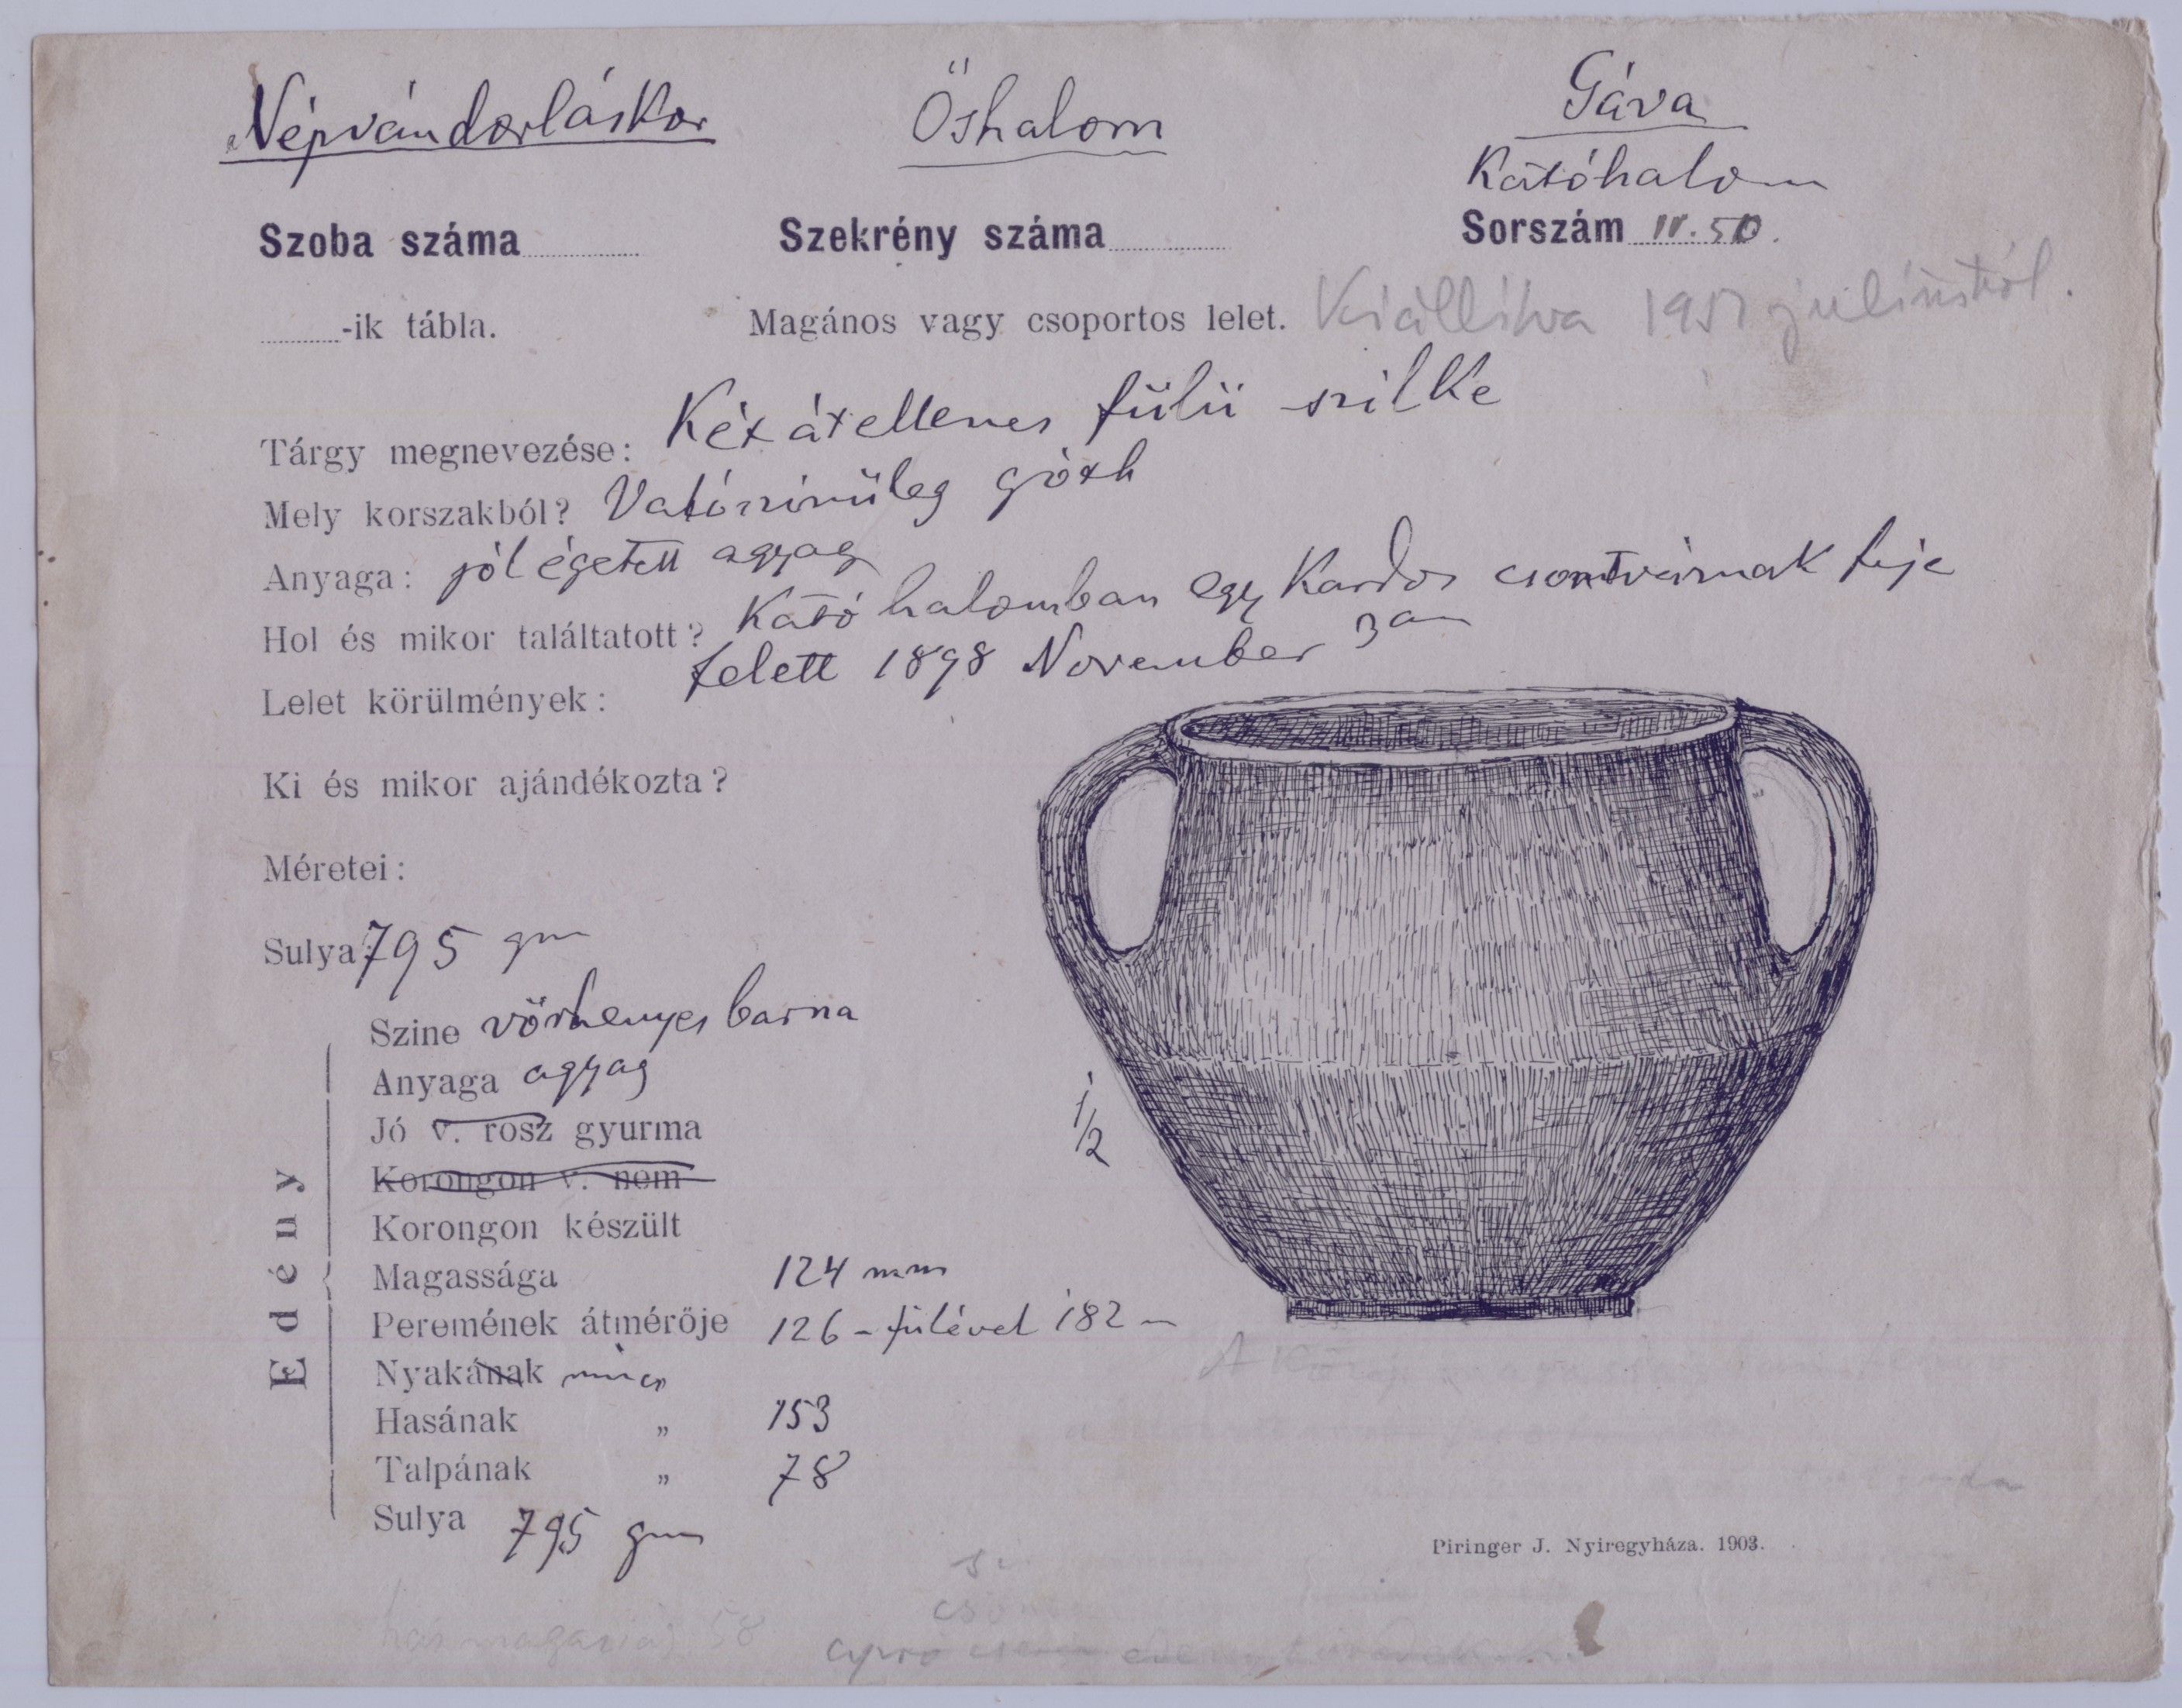 Népvándorláskor Őshalom Gáva
Katóhalom
Szoba száma Szekrény száma Sorszám IV. 50.
-ik tábla. Magános vagy csoportos lelet. Kiállitva 1951 juliustól.
Tárgy megnevezése: Két átellenes fülü szilke
Mely korszakból? Valószinüleg góth
Anyaga: jól égetett agyag
Hol és mikor találtatott? Kató halomban egy Kardos csontvárnak feje
felett 1898 November 3 án
Lelet körülmények:
Ki és mikor ajándékozta?
Méretei:
Sulya: 795 gm
Edény
Szine vörhenyes barna
Anyaga agyag
Jó v. rosz gyurma
Korongon v. nem
Korongon készült
Magassága 124 mm
Peremének átmérője 126 - fülével 182
Nyakának nincs
Hasának „ 153
Talpának „ 78
Sulya 795 gm
1/2
Piringer J. Nyiregyháza. 1903.
has magasság 58